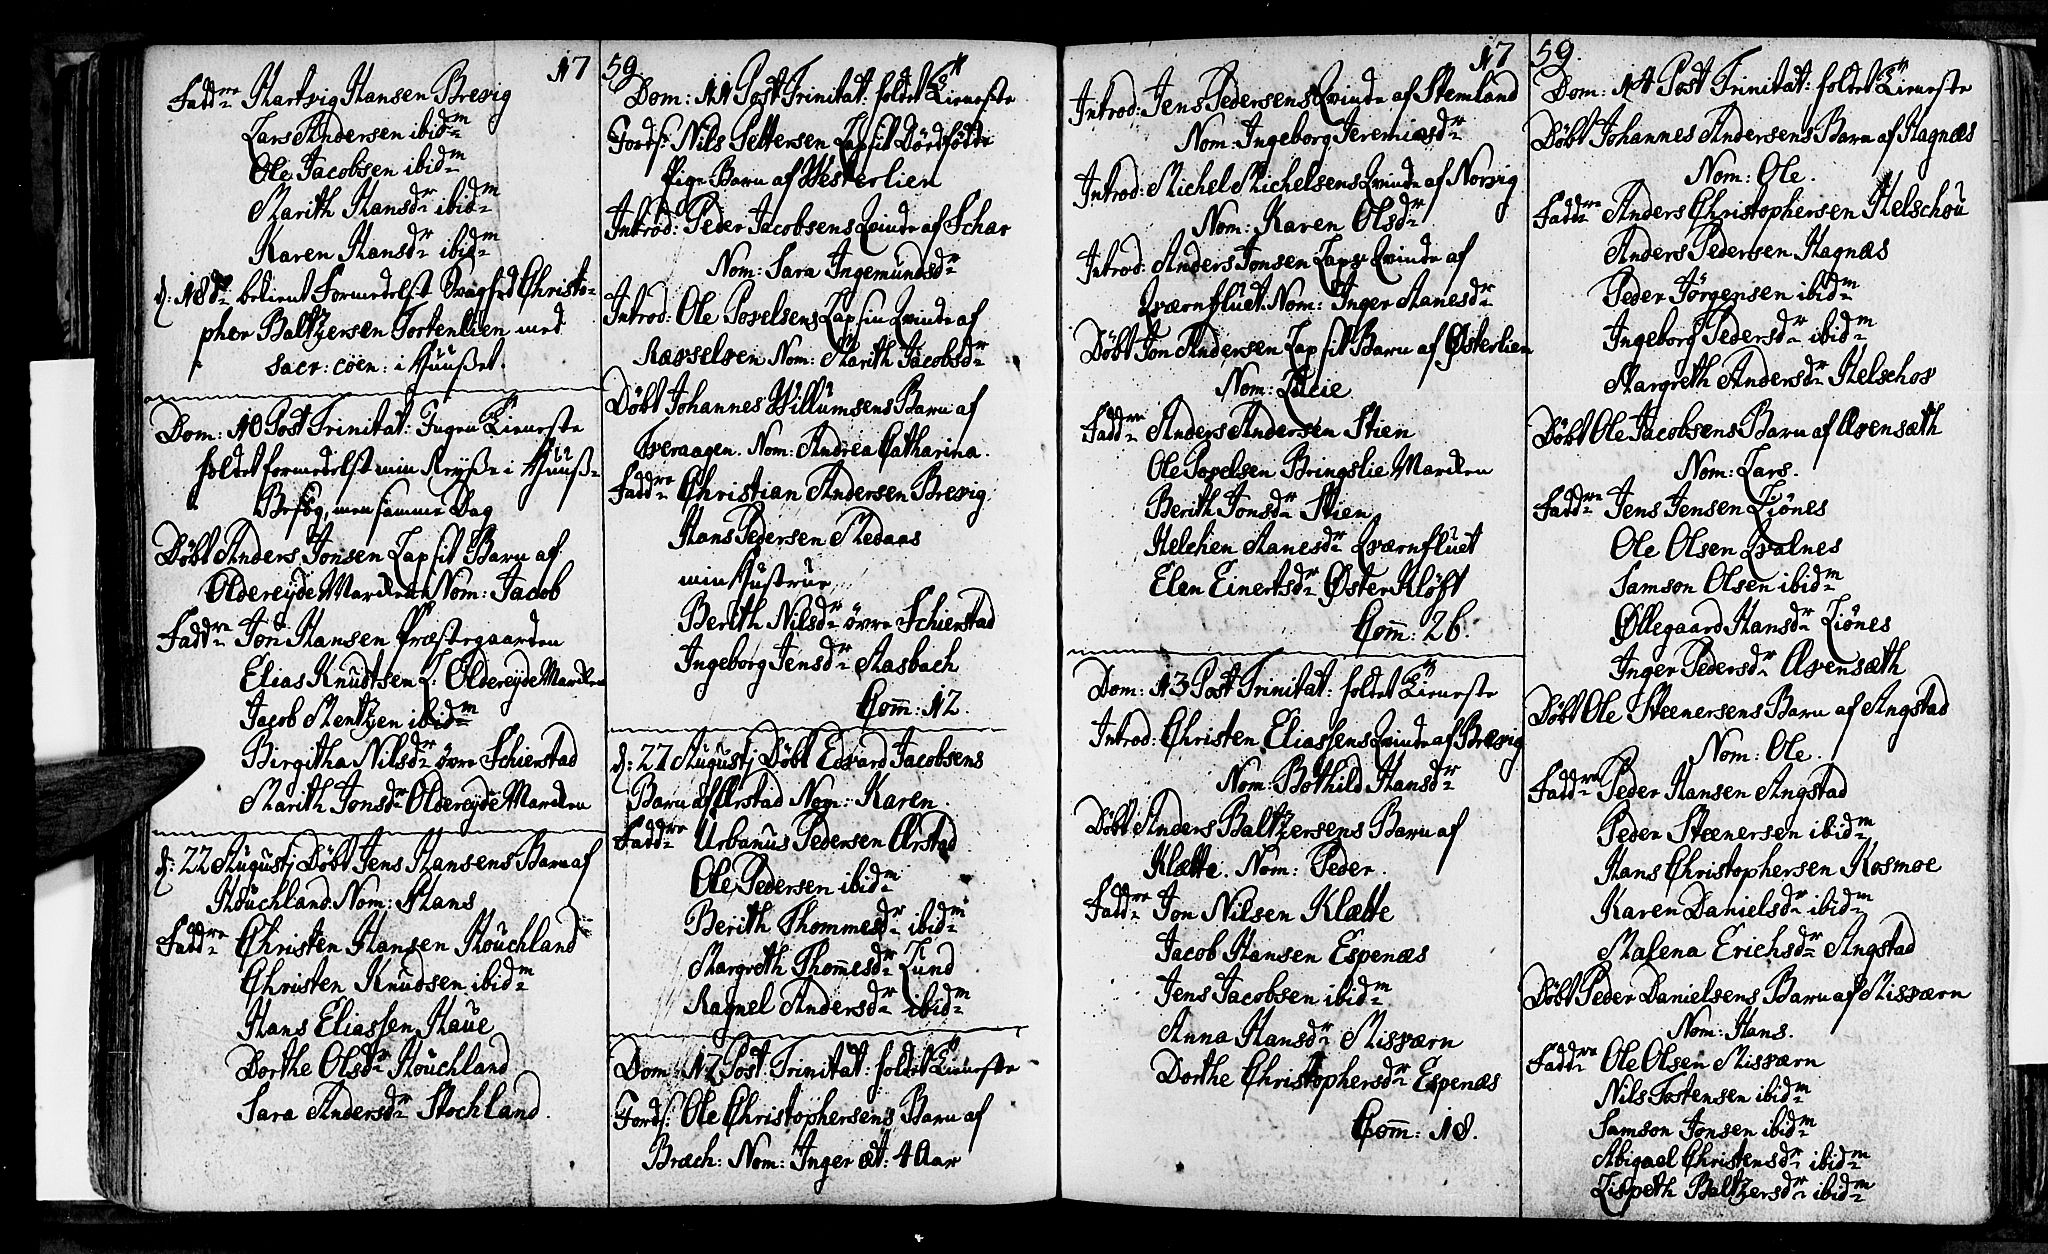 17
Fadd:re Hartvig Hansen Brevig
Lars Andersen ibid:m
Ole Jacobsen ibid:m
Marith Hansd:r ibid:m
Karen Hansd:r ibid:m
d: 18de betient Formedelst Svaghed Christo-
pher Baltzersen Tostenlien med
sacr: coen: i Huußet.
Dom: 10 Post Trinitat: Ingen Tieneste
holdet formedelst min Reyße i Huuß-
Besøg, men samme Dag
Døbt Anders Jonsen Lap sit Barn af
Oldereyde Marcken Nom: Jacob
Fadd:re Jon Hansen Præstegaarden
Elias Knudtsen L: Oldereyde Marcken
Jacob Mentzen ibid:m
Birgitha Nilsd:r övre Schierstad
Marith Jonsd:r Oldereyde Marcken
d: 22 Augustj Døbt Jens Hansens Barn af
Houchland. Nom: Hans
Fadd:re Christen Hansen Houchland
Christen Knudsen ibid:m
Hans Eliassen Haue
Dorthe Olsd:r Houchland
Sara Andersd:r Stochland.
59
Dom: 11 Post Trinitat: holdet Tieneste
Fords: Nils Pettersen Lap sit Dødfødde
Pige Barn af Westerlien
Introd: Peder Jacobsens Qvinde af Schar
Nom: Sara Ingemundsd:r
Introd: Ole Povelsens Lap sin Qvinde af
Ravselven Nom: Marith Jacobsd:r
Døbt Johannes Willumsens Barn af
Tveraagen. Nom: Andrea Catharina.
Fadd:re Christian Andersen Brevig
Hans Pedersen Medaas
min Hustrue
Berith Nilsd:r övre Schierstad
Ingeborg Jensd:r Aasbach
Com: 12.
d: 27 Augustj Døbt Edvard Jacobsens
Barn af Arstad Nom: Karen.
Fadd:re Urbanus Pedersen Arstad
Ole Pedersen ibid:m
Berith Thommesd:r ibid:m
Margreth Thomesd:r Lund
Ragnel Andersd:r ibid:m
Dom: 12 Post Trinitat: holdet Tieneste
Fords: Ole Christophersens Barn af
Bræch: Nom: Inger æt: 4 Aar
17
Introd: Jens Pedersens Qvinde af Stemland
Nom: Ingeborg Jeremiæsd:r
Introd: Michel Michelsens Qvinde af Norvig
Nom: Karen Olsd:r
Introd: Anders Jonsen Laps Qvinde af
Qværnfluet. Nom: Inger Aanesd:r
Døbt Jon Andersen Lap sit Barn af Østerlien
Nom: Lucie
Fadd:re Anders Andersen Stien
Ole Povelsen Bringslie Marcken
Berith Jonsd:r Stien
Helchen Aanesd:r Qværnfluet
Elen Einertsd:r Øster Kløft
Com: 26.
Dom: 13 Post Trinitat: holdet Tieneste
Introd: Christen Eliassens Qvinde af Brevig
Nom: Bothild Hansd:r
Døbt Anders Baltzersens Barn af
Klætte. Nom: Peder.
Fadd:re Jon Nilsen Klætte
Jacob Hansen Espenæs
Jens Jacobsen ibid:m
Anna Hansd:r Misværn
Dorthe Christophersd:r Espenæs
Com: 18.
59.
Dom: 14 Post Trinitat: holdet Tieneste
Døbt Johannes Andersens Barn af Hagnæs
Nom: Ole.
Fadd:re Anders Christophersen Helschou
Anders Pedersen Hagnæs
Peder Jörgensen ibid:m
Ingeborg Pedersd:r ibid:m
Margreth Andersd:r Helschov
Døbt Ole Jacobsens Barn af Avensæth
Nom: Lars.
Fadd:re Jens Jensen Liönes
Ole Olsen Qvalnes
Samson Olsen ibid:m
Øllegaard Hansd:r Liönes
Inger Pedersd:r Avensæth
Døbt Ole Steenersens Barn af Angstad
Nom: Ole.
Fadd:re Peder Hansen Angstad
Peder Steenersen ibid:m
Hans Christophersen Kosmoe
Karen Danielsd:r ibid:m
Malena Erichsd:r Angstad
Døbt Peder Danielsens Barn af Misværn
Nom: Hans.
Fadd:re Ole Olsen Misværn
Nils Tostensen ibid:m
Samson Jonsen ibid:m
Abigael Christensd:r ibid:m
Lispeth Baltzersd:r ibid:m